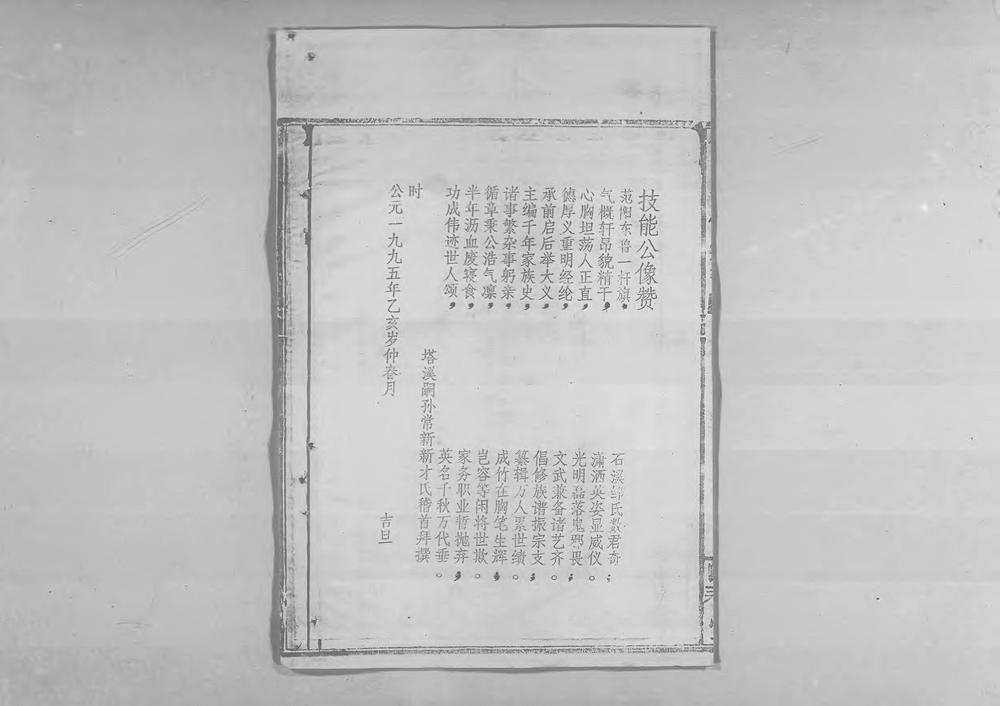 技能公像赞
范阳东鲁一杆旗，石溪邹氏数君奇；
气概轩昂貌精干，潇洒英姿显威仪。
心胸坦荡人正直，光明磊落鬼邪畏；
德厚义重明经纶，文武兼备诸艺齐。
承前启后举大义，倡修族谱振宗支；
主编千年家族史，纂辑万人累世绩。
诸事繁杂事躬亲，成竹在胸笔生辉；
循章秉公浩气凛，岂容等闲将世欺。
半年沥血废寝食，家务职业暂抛弃；
功成伟迹世人颂，英名千秋万代垂。
塔溪嗣孙常新新才氏稽首拜撰
时
公元一九九五年乙亥岁仲春月 吉旦